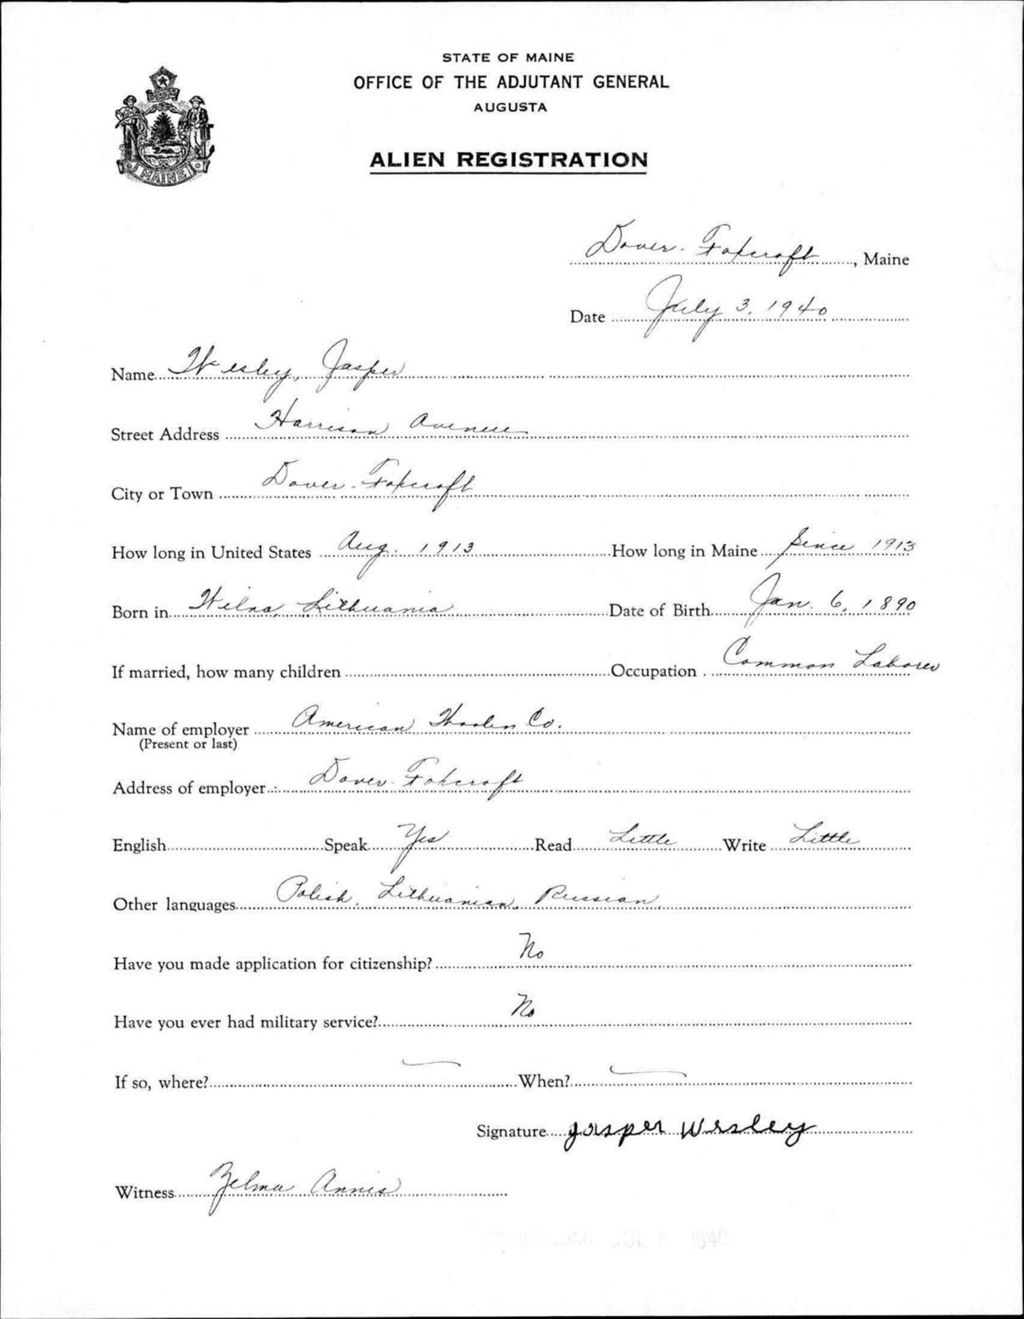 STATE OF MAINE
OFFICE OF THE ADJUTANT GENERAL
AUGUSTA
ALIEN REGISTRATION
MAINE
Dover-Foxcroft, Maine
Date July 3, 1940
Name Wesley, Jasper
Street Address Harrison Avenue
City or Town Dover-Foxcroft
How long in United States Aug. 1913 How long in Maine Since 1913
Born in Wilna, Lithuania Date of Birth Jan. 6, 1890
If married, how many children Occupation Common Laborer
Name of employer American Woolen Co.
(Present or last)
Address of employer Dover-Foxcroft
English Speak Yes Read Little Write Little
Other languages Polish, Lithuanian, Russian
Have you made application for citizenship? No
Have you ever had military service? No
If so, where? — When? —
Signature Jasper Wesley
Witness Zelma Annis